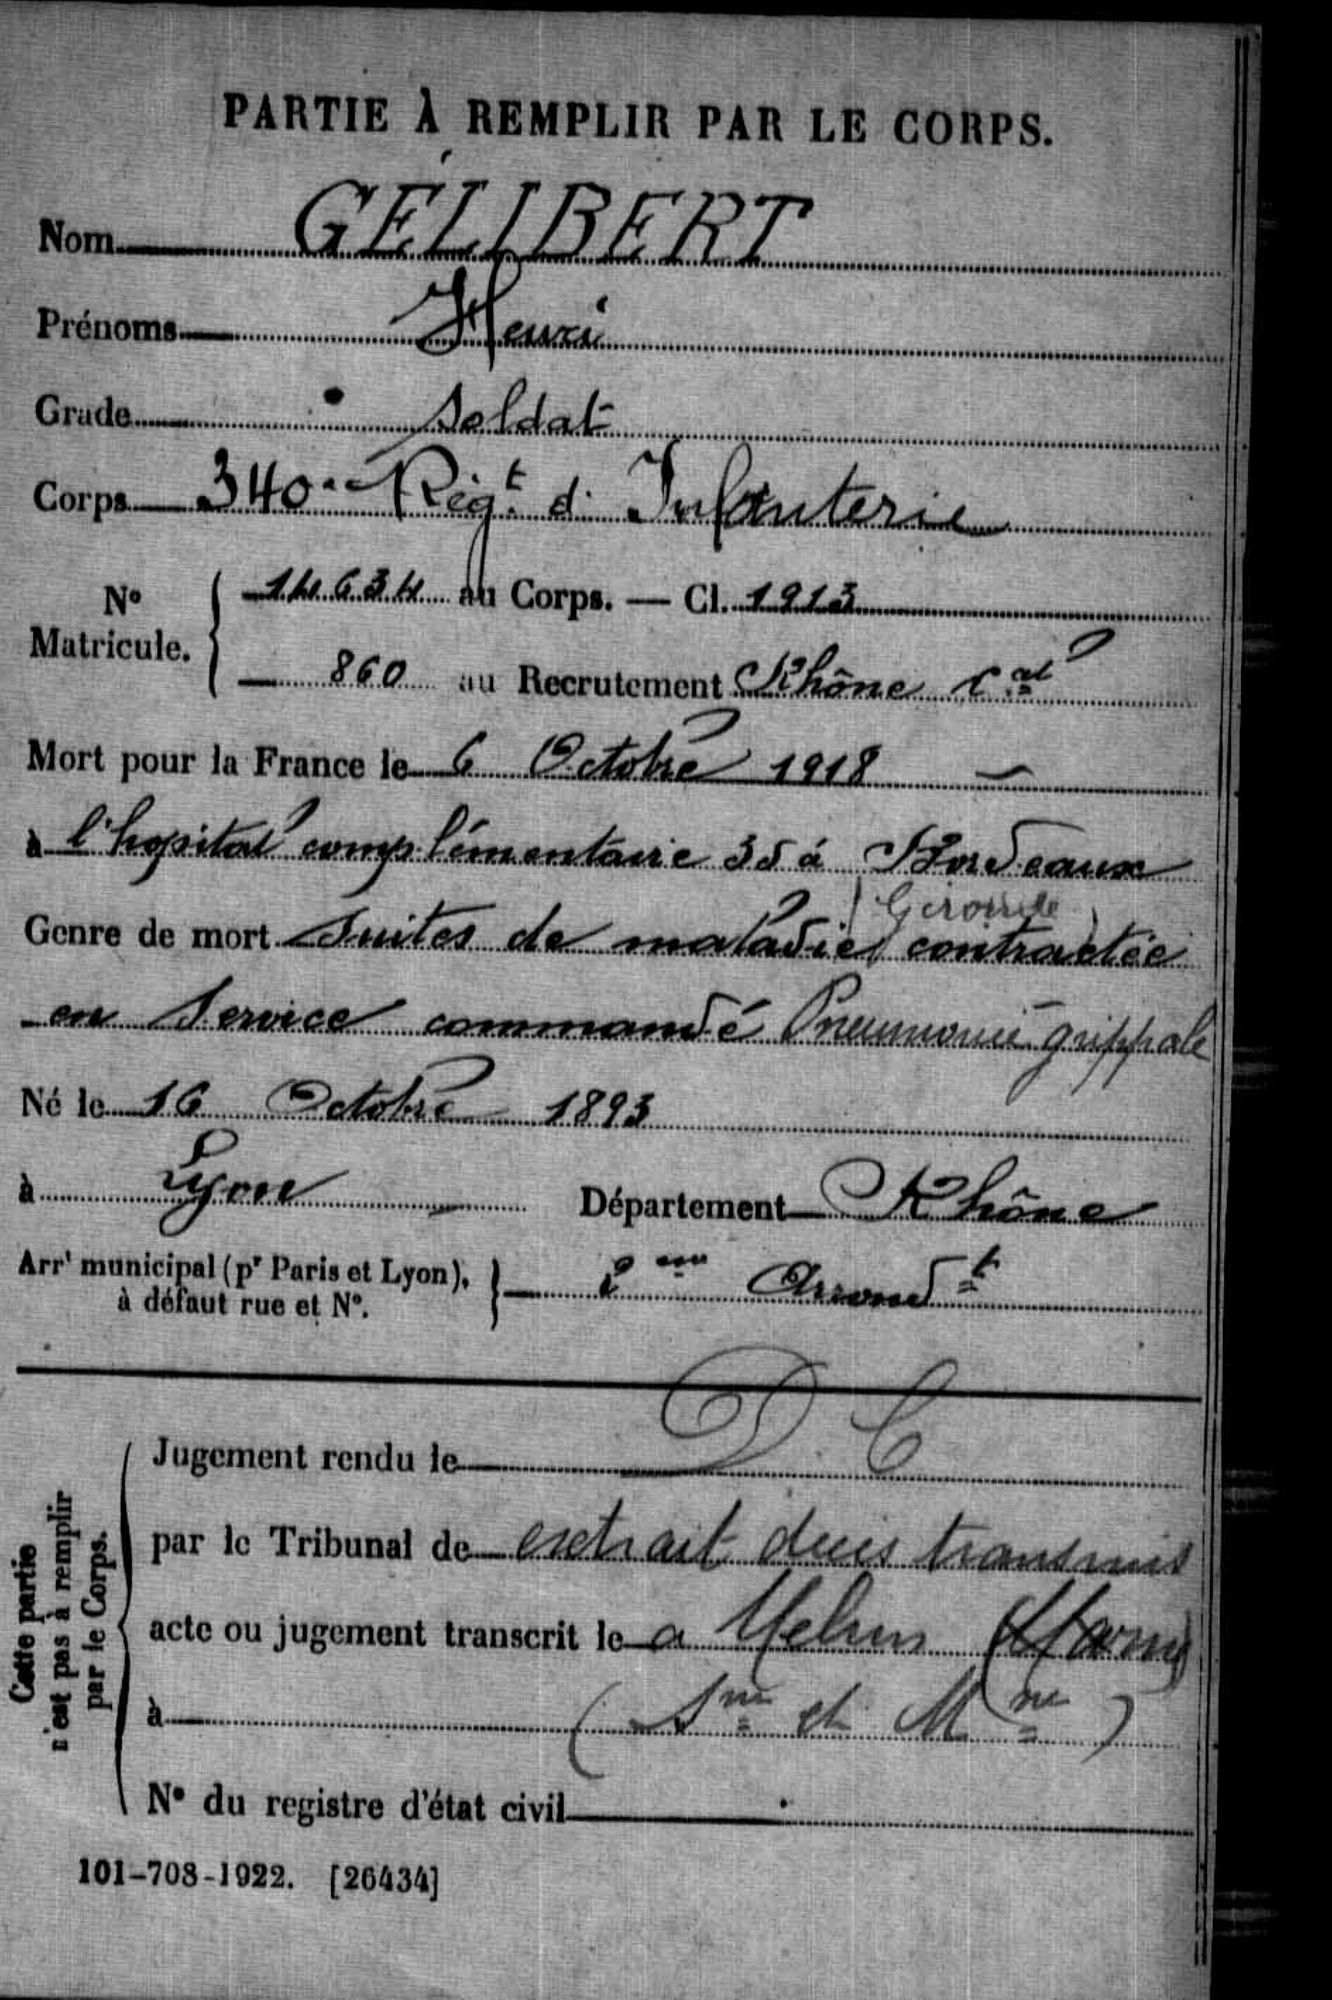 PARTIE À REMPLIR PAR LE CORPS.
Nom GÉLIBERT
Prénoms Henri
Grade Soldat
Corps 340e Régt d'Infanterie
No Matricule. 14634 au Corps. — Cl. 1913
860 au Recrutement Rhône Cal
Mort pour la France le 6 Octobre 1918
à l'hopital complémentaire 35 à Bordeaux
(Gironde)
Genre de mort Suites de maladie contractée
en Service commandé Pneumonie grippale
Né le 16 Octobre 1893
à Lyon Département Rhône
Arrt municipal (pr Paris et Lyon), à défaut rue et No. 2me Arrondt
D. C
Cette partie n'est pas à remplir par le Corps.
Jugement rendu le
par le Tribunal de extrait transmis
acte ou jugement transcrit le a Melun (Marne)
à (Sne et Mne)
No du registre d'état civil
101-708-1922. [26434]